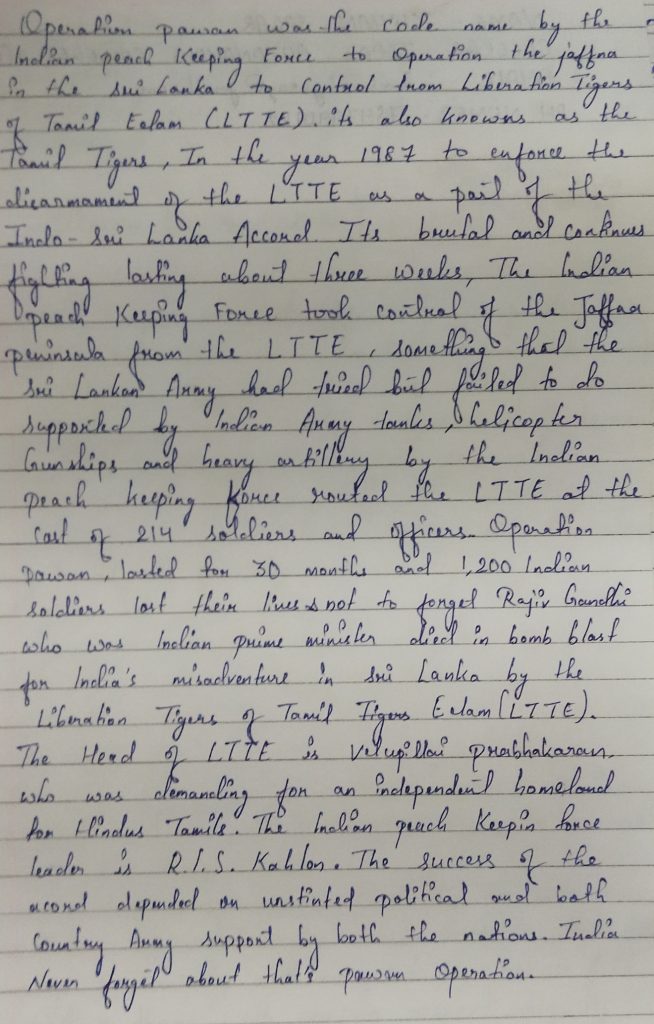 Operation pawan was the code name by the
Indian peach Keeping Force to Operation the jaffna
in the sri Lanka to control from Liberation Tigers
of Tamil Eelam (LTTE). its also knowns as the
Tamil Tigers, In the year 1987 to enforce the
dicarmament of the LTTE as a part of the
Indo-Sri Lanka Accord. Its brutal and continues
fighting lasting about three weeks, The Indian
peach Keeping Force took control of the Jaffna
peninsula from the LTTE, something that the
Sri Lankan Army had tried but failed to do
supported by Indian Army tanks, helicopter
Gunships and heavy artillery by the Indian
peach keeping force routed the LTTE at the
cast of 214 soldiers and officers. Operation
pawan, lasted for 30 months and 1,200 Indian
soldiers lost their lives & not to forget Rajiv Gandhi
who was Indian prime minister died in bomb blast
for India's misadventure in sri Lanka by the
Liberation Tigers of Tamil Tigers Eelam (LTTE).
The Head of LTTE is Velupillai prabhakaran.
who was demanding for an independent homeland
for Hindus Tamils. The Indian peach Keepin force
leader is R.I.S. Kahlon. The success of the
acord depended on unstinted political and both
Country Army support by both the nations. India
Never forget about that's pawan Operation.